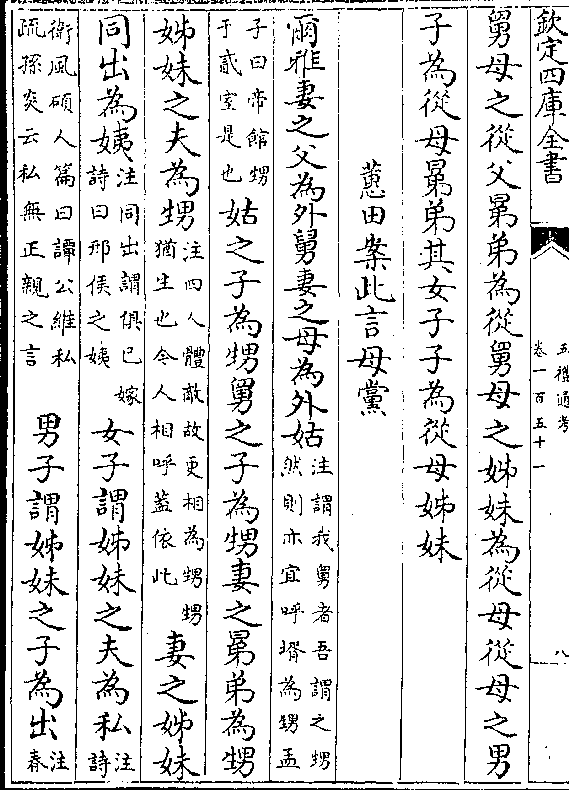 欽定四庫全書
五禮通考
卷一百五十一
八
舅母之從父晜弟為從舅母之姊妹為從母從母之男
子為從母晜弟其女子子為從母姊妹
蕙田案此言母黨
爾雅妻之父為外舅妻之母為外姑
注謂我舅者吾謂之甥
然則亦宜呼壻為甥孟
子曰帝館甥
于貳室是也
姑之子為甥舅之子為甥妻之晜弟為甥
姊妹之夫為甥
注四人體敵故更相為甥甥
猶生也今人相呼蓋依此
妻之姊妹
同出為姨
注同出謂俱已嫁
詩曰邢侯之姨
女子謂姊妹之夫為私
注
詩
衛風碩人篇曰譚公維私
疏孫炎云私無正親之言
男子謂姊妹之子為出
注
春